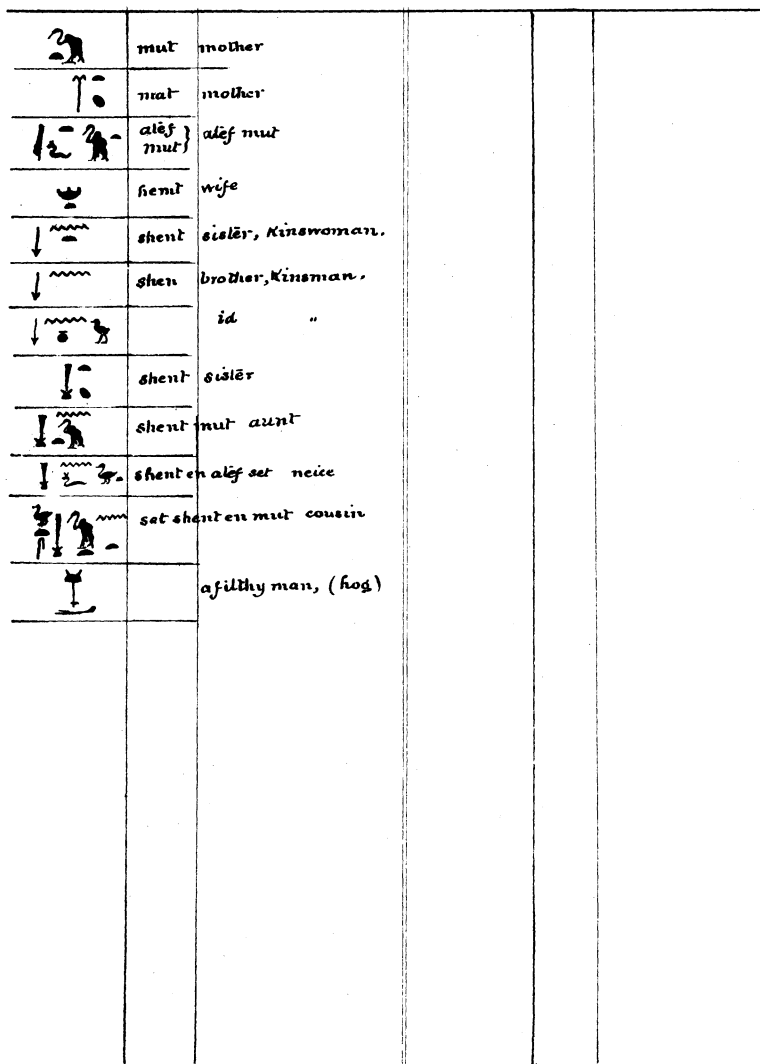 mut mother
mat mother
alef mut } alef mut
hemt wife
shent sister, Kinswoman.
shen brother, Kinsman.
id "
shent sister
shent mut aunt
shent en alef set neice
set shent en mut cousin
a filthy man, (hog)